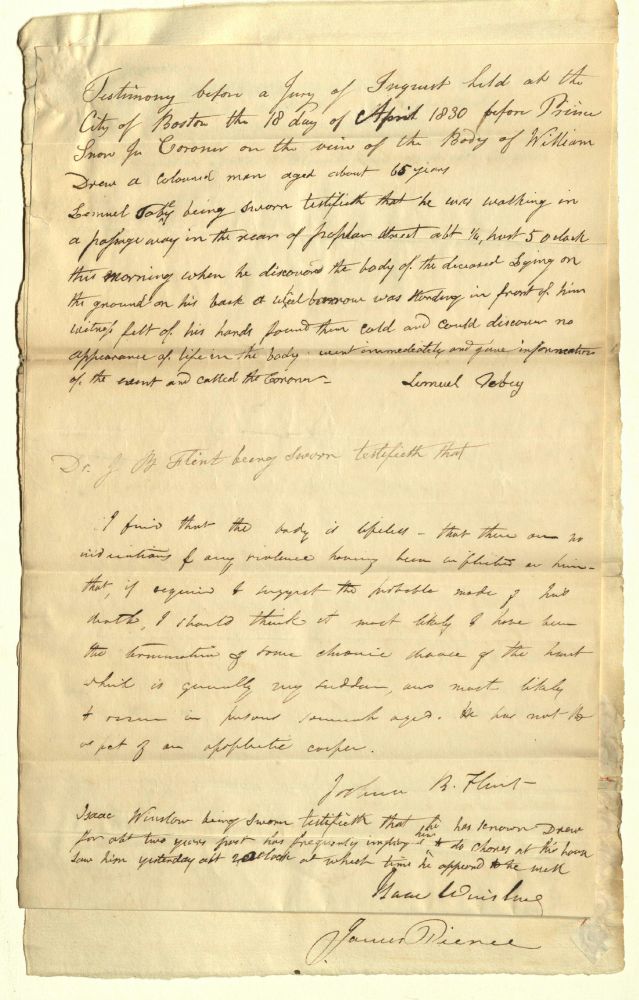 Testimony before a Jury of Inquest held at the
City of Boston the 18 day of April 1830 before Prince
Snow Jr Coroner on the view of the Body of William
Drew a coloured man aged about 65 years
Lemuel Tobey being sworn testifieth that he was walking in
a passage way in the rear of Poplar Street abt 1/4 past 5 oclock
this morning when he discovered the body of the deceased Lying on
the ground on his back a wheel barrow was standing in front of him
witness felt of his hands found them cold and could discover no
appearance of life in the body went immediately and gave information
of the event and called the Coroner - Lemuel Tobey
Dr. J B Flint being sworn testifieth that
I find that the body is lifeless - that there are no
indications of any violence having been inflicted on him -
that, if required to suggest the probable mode of his
death, I should think it most likely to have been
the termination of some chronic disease of the heart
which is generally very sudden, and most likely
to occur in persons somewhat aged. He has not the
aspect of an apoplectic corpse.
Joshua B. Flint
Isaac Winslow being sworn testifieth that he has known Drew
for abt two years past has frequently employ'd him to do chores at his house
saw him yesterday abt 2 oClock at which time he appeared to be well
Isaac Winslow
James Pierce